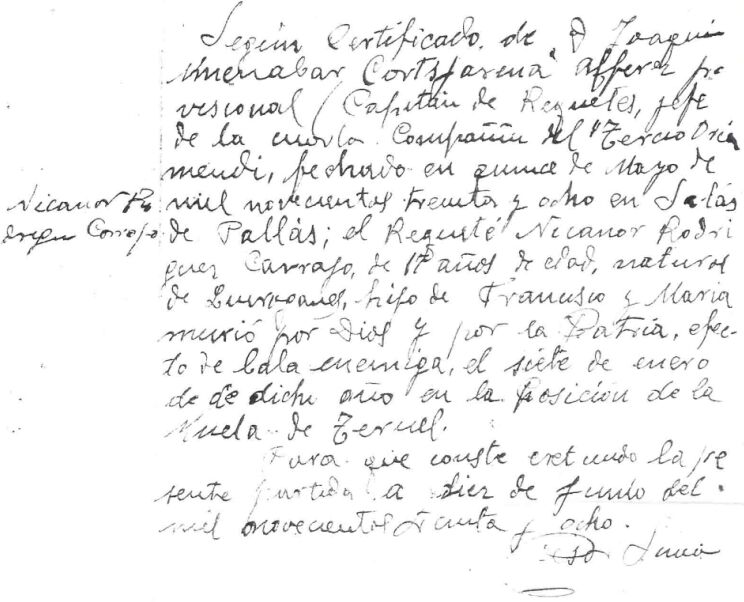 Según Certificado de D Joaquín
Munabar alférez pro
visional (Capitán de Requetés, jefe
de la cuarta Compañía del "Tercio Oria
mendi, fechado en quince de Mayo de
mil novecientos treinta y ocho en Salás
de Pallás; el Requeté Nicanor Rodri
guez Carrajo, de 17 años de edad, natural
de hijo de Francisco y Maria
murió por Dios y por la Patria, efec
to de bala enemiga, el siete de enero
de de dicho año en la Posición de la
Muela de Teruel.
Nicanor Ro
driguez Corrajo
Para que conste extiendo la pre
sente partida a diez de Junio del
mil novecientos treinta y ocho.